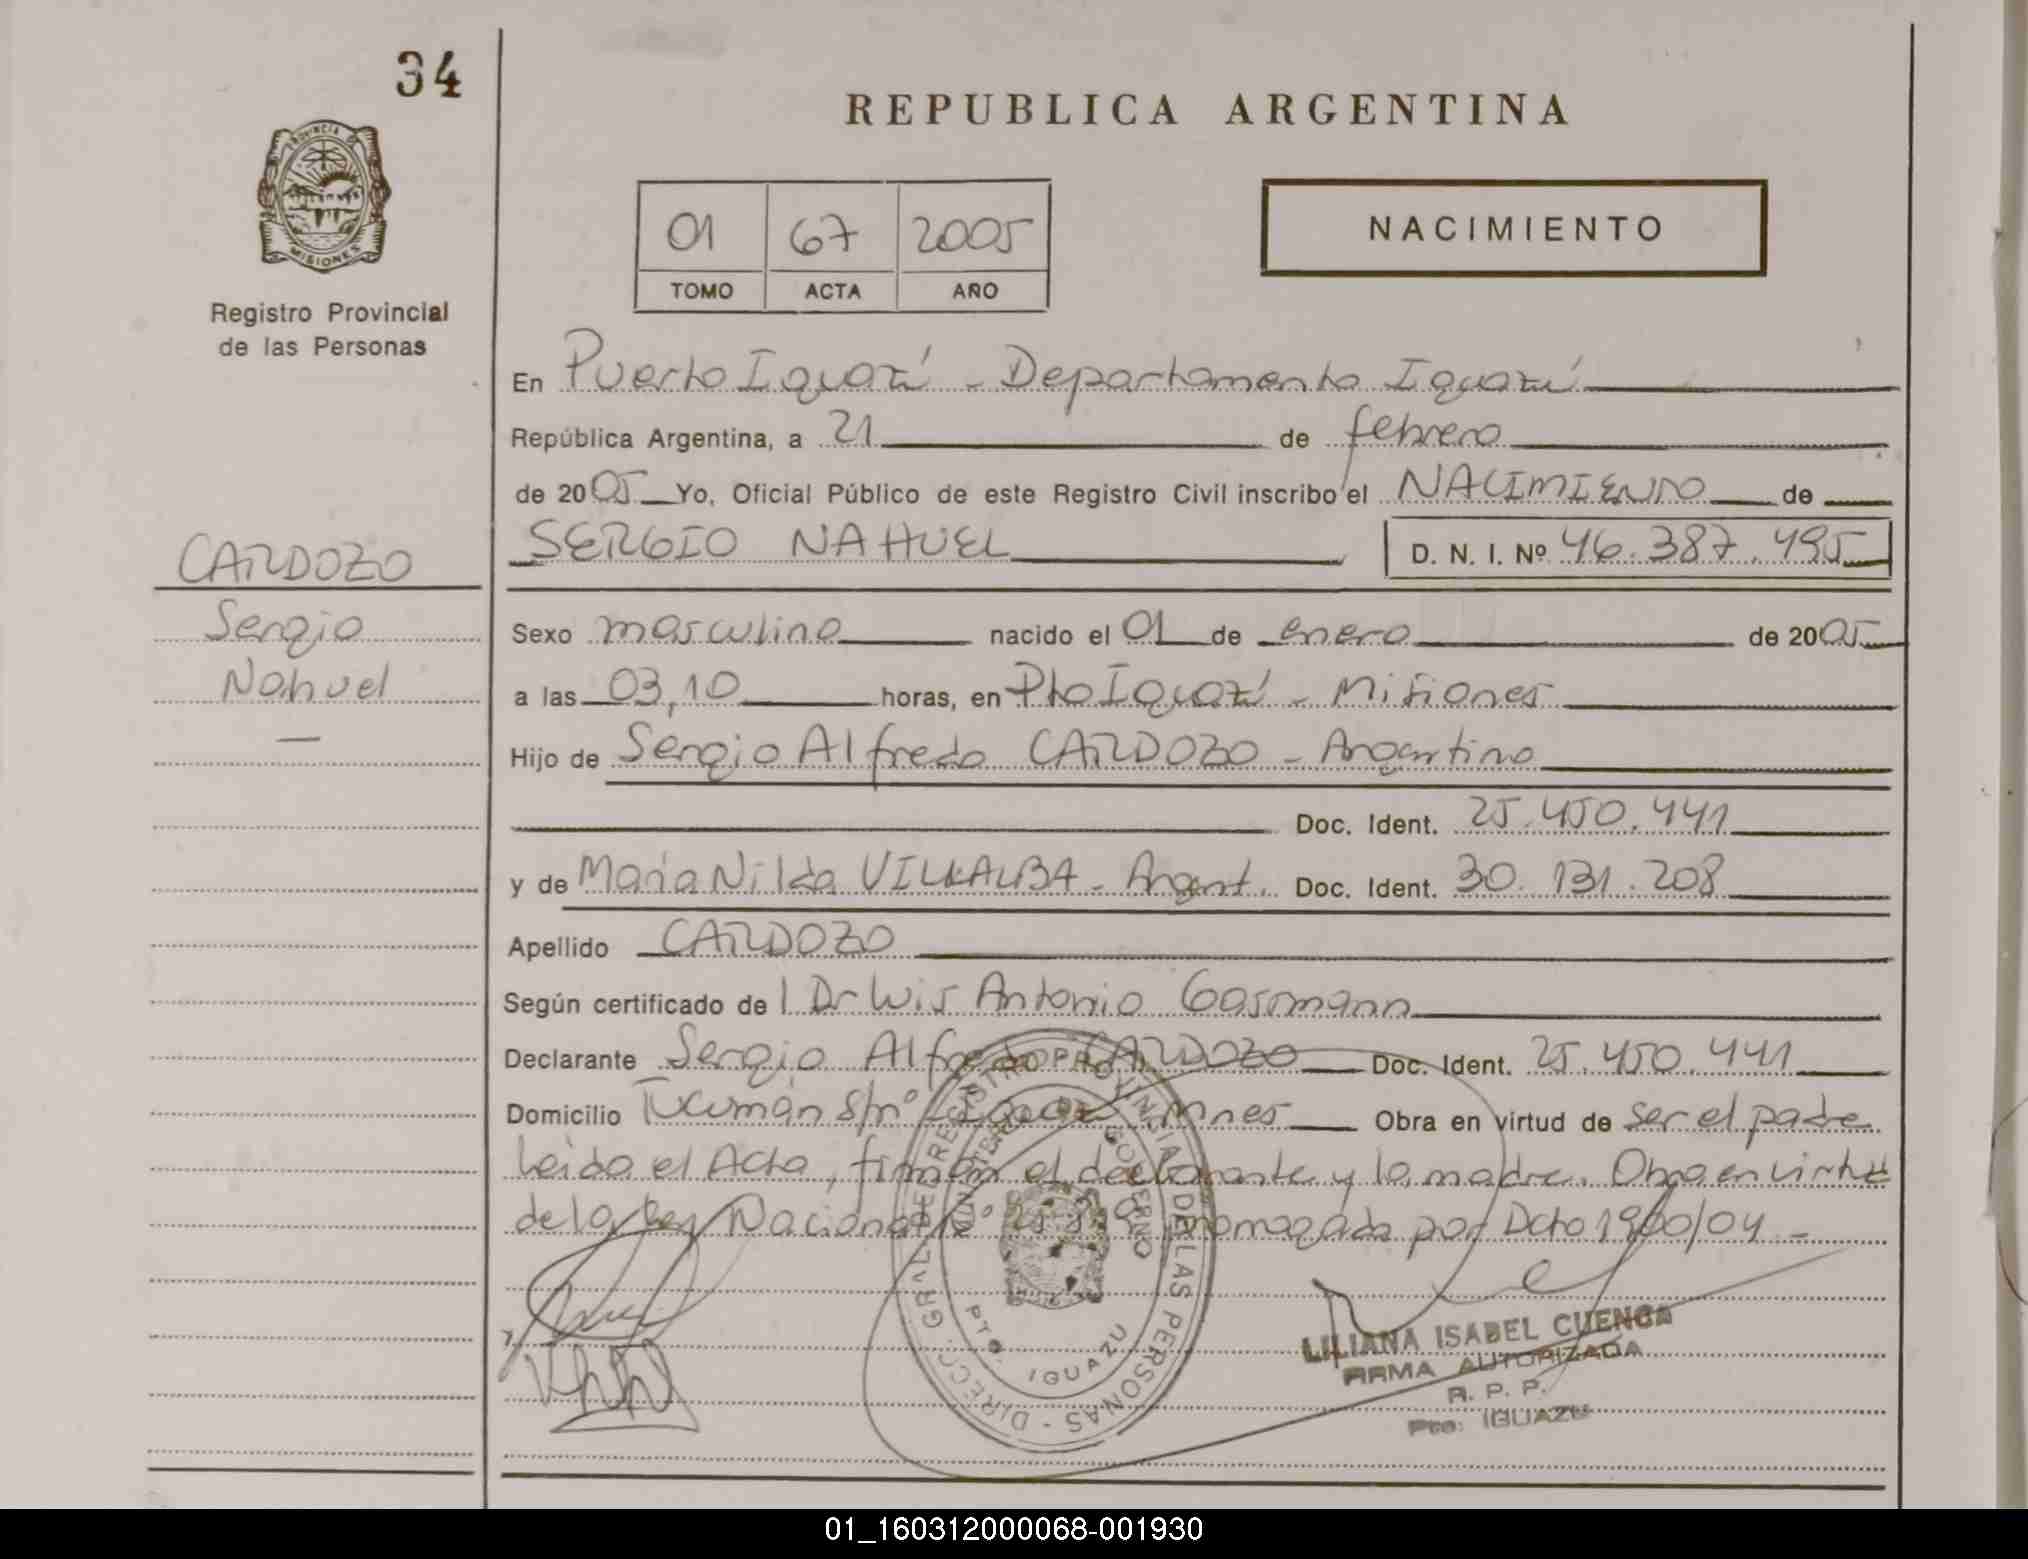 34
REPUBLICA ARGENTINA
PROVINCIA DE
MISIONES
Registro Provincial
de las Personas
01 67 2005
TOMO ACTA AÑO
NACIMIENTO
En Puerto Iguazú - Departamento Iguazú
República Argentina, a 21 de febrero
de 2005 Yo, Oficial Público de este Registro Civil inscribo el NACIMIENTO de
SERGIO NAHUEL D. N. I. Nº 46.387.495
CARDOZO
Sergio
Nahuel
Sexo masculino nacido el 01 de enero de 2005
a las 03,10 horas, en Pto Iguazú - Misiones
Hijo de Sergio Alfredo CARDOZO - Argentino
Doc. Ident. 25.450.441
y de Maria Nilda VILLALBA - Argent. Doc. Ident. 30.131.208
Apellido CARDOZO
Según certificado de l Dr Luis Antonio Gassmann
Declarante Sergio Alfredo CARDOZO Doc. Ident. 25.450.441
Domicilio Tucumán s/nº Iguazú Mnes Obra en virtud de ser el padre
Leida el Acta, firman el declarante y la madre. Obra en virtud
de la Ley Nacional Nº promogada por Dcto 1900/04 -
DIRECC. GRAL. DE REGISTRO PROVINCIAL DE LAS PERSONAS -
MINISTERIO DE GOBIERNO
PTO. IGUAZU
LILIANA ISABEL CUENCA
FIRMA AUTORIZADA
R. P. P.
Pto: IGUAZU
01_160312000068-001930